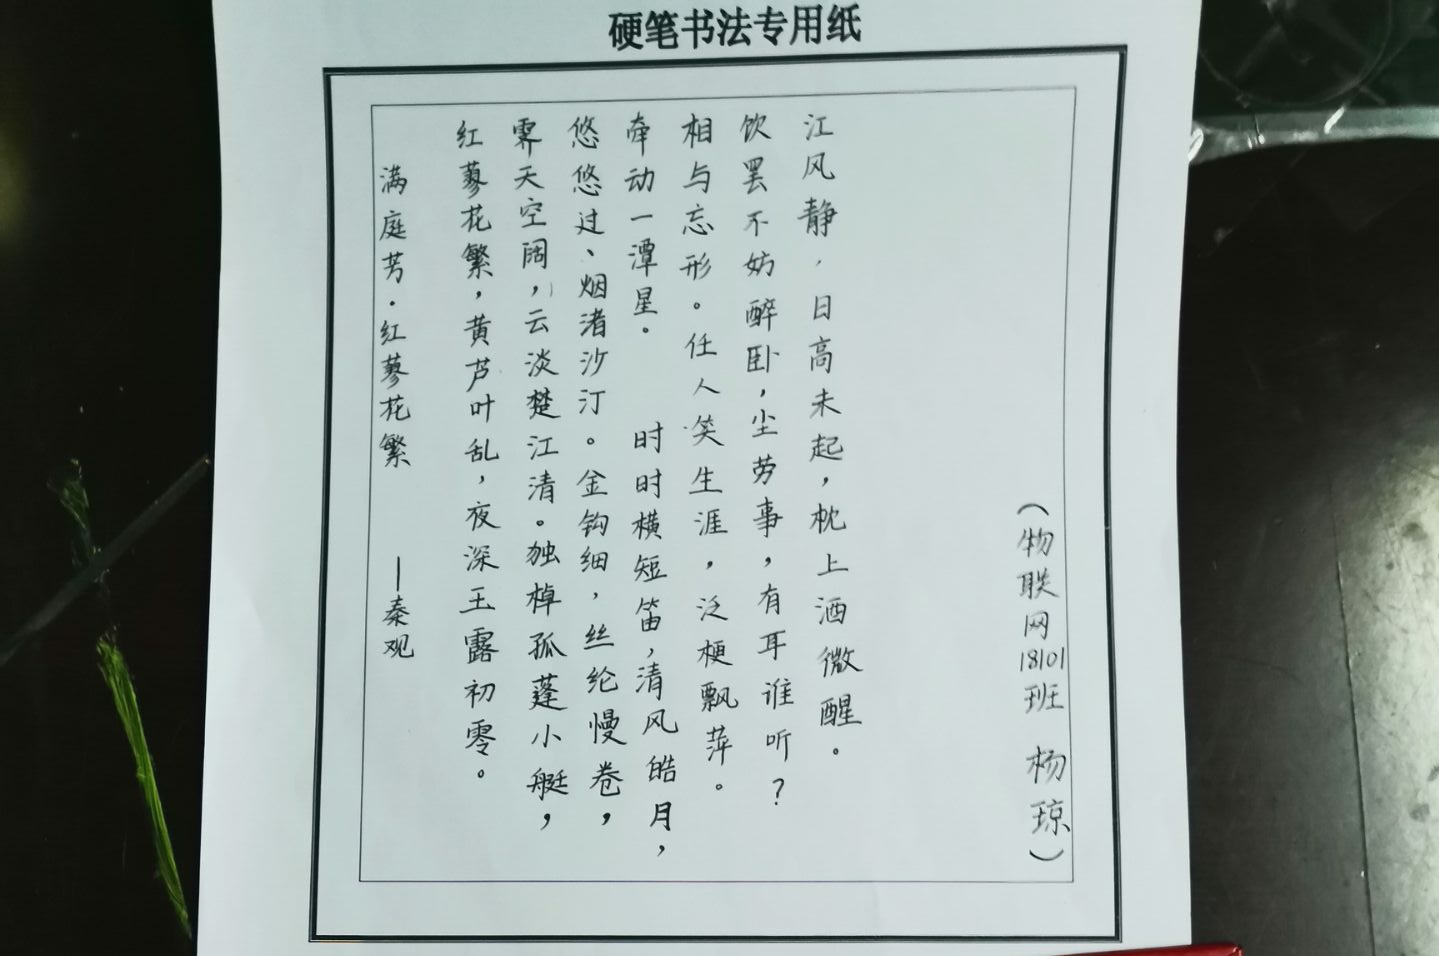 硬笔书法专用纸
满庭芳·红蓼花繁 —秦观
红蓼花繁，黄芦叶乱，夜深玉露初零。
霁天空阔，云淡楚江清。独棹孤蓬小艇，
悠悠过、烟渚沙汀。金钩细，丝纶慢卷，
牵动一潭星。 时时横短笛，清风皓月，
相与忘形。任人笑生涯，泛梗飘萍。
饮罢不妨醉卧，尘劳事，有耳谁听？
江风静，日高未起，枕上酒微醒。
（物联网18101班 杨琼）